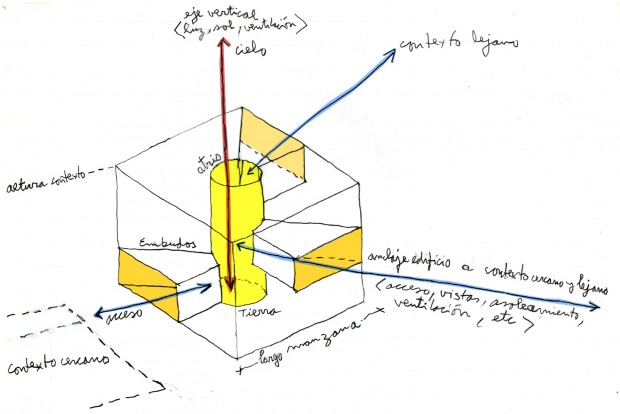 eje vertical
(luz, sol, ventilación)
cielo
contexto lejano
atrio
altura contexto
Embudos
anclaje edificio a contexto cercano y lejano
(acceso, vistas, asoleamiento,
ventilación, etc)
acceso
Tierra
largo manzana
contexto cercano